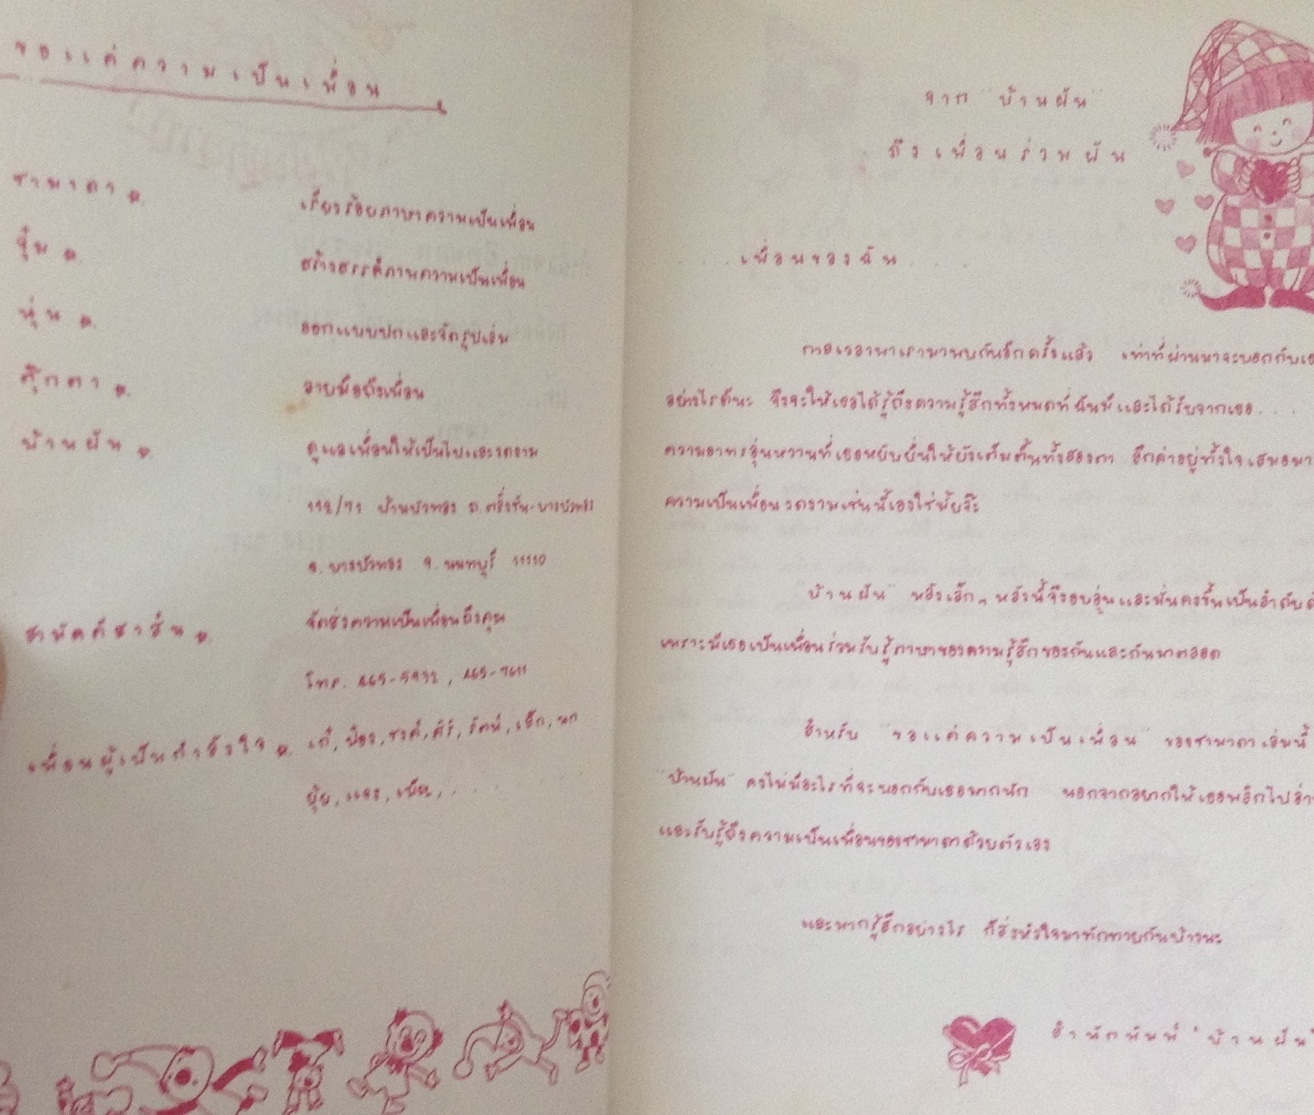 ขอแค่ความเป็นเพื่อน
ชามาดา
เรียงร้อยภาษาความเป็นเพื่อน
จุ๋ม
สร้างสรรค์ภาพความเป็นเพื่อน
หุ่น
ออกแบบปกและจัดรูปเล่ม
ตุ๊กตา
ลายมือถึงเพื่อน
บ้านฝัน
ดูแลเพื่อนให้เป็นไปและงดงาม
บ้านบัวทอง ถ.ตลิ่งชัน-บางบัวทอง
อ.บางบัวทอง จ.นนทบุรี 11110
จัดส่งความเป็นเพื่อนถึงคุณ
โทร.
เพื่อนผู้เป็นกำลังใจ
จาก "บ้านฝัน"
ถึงเพื่อนร่วมฝัน
....เพื่อนของฉัน....
กาลเวลาพาเรามาพบกันอีกครั้งแล้ว เท่าที่ผ่านมาจะบอกกับ
อย่างไรดีนะ จึงจะให้เธอได้รู้ถึงความรู้สึกทั้งหมดที่ฉันมีและได้รับจากเธอ....
ความอาทรอุ่นหวานที่เธอหยิบยื่นให้ยังเต็มตื้นทั้งสองตา อีกค่าอยู่ทั้งใจเสมอมา
ความเป็นเพื่อนงดงามเช่นนี้เองใช่มั้ยจ๊ะ
"บ้านฝัน" หลังเล็กๆ หลังนี้จึงอบอุ่นและมั่นคงขึ้นเป็นลำดับ
เพราะมีเธอเป็นเพื่อนร่วมรับรู้ภาษาของความรู้สึกของกันและกันมาตลอด
สำหรับ "ขอแค่ความเป็นเพื่อน" ของชามาดาเล่มนี้
"บ้านฝัน" คงไม่มีอะไรที่จะบอกกับเธอมากนัก นอกจากอยากให้เธอพลิกไป
และรับรู้ถึงความเป็นเพื่อนของชามาดาด้วยตัวเอง
และหากรู้สึกอย่างไร ก็ส่งหัวใจมาทักทายกันบ้างนะ
สำนักพิมพ์ "บ้านฝัน"